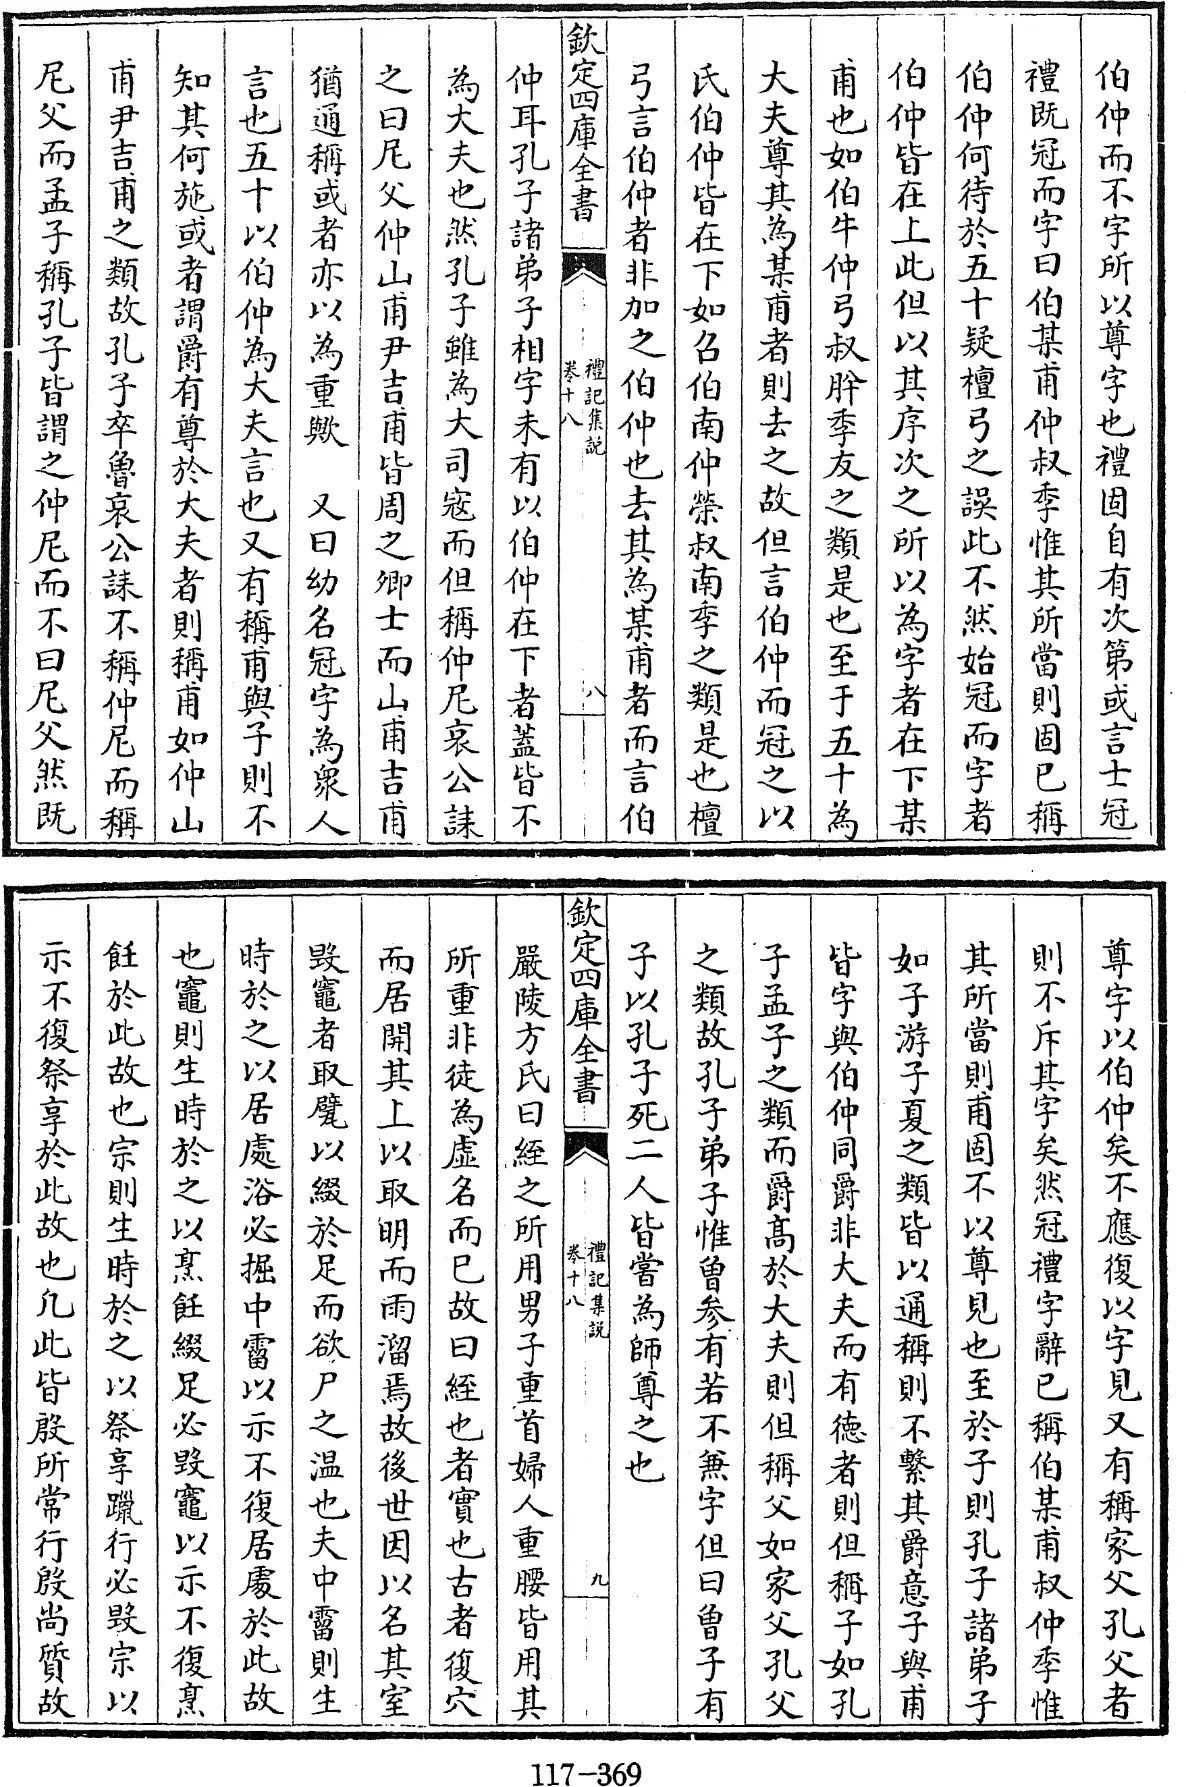 伯仲而不字所以尊字也禮固自有次第或言士冠
禮既冠而字曰伯某甫仲叔季惟其所當則固已稱
伯仲何待於五十疑檀弓之誤此不然始冠而字者
伯仲皆在上此但以其序次之所以為字者在下某
甫也如伯牛仲弓叔肸季友之類是也至于五十為
大夫尊其為某甫者則去之故但言伯仲而冠之以
氏伯仲皆在下如召伯南仲榮叔南季之類是也檀
弓言伯仲者非加之伯仲也去其為某甫者而言伯
欽定四庫全書 禮記集説 卷十八 八
仲耳孔子諸弟子相字未有以伯仲在下者蓋皆不
為大夫也然孔子雖為大司寇而但稱仲尼哀公誄
之曰尼父仲山甫尹吉甫皆周之卿士而山甫吉甫
猶通稱或者亦以為重歟 又曰幼名冠字為衆人
言也五十以伯仲為大夫言也又有稱甫與子則不
知其何施或者謂爵有尊於大夫者則稱甫如仲山
甫尹吉甫之類故孔子卒魯哀公誄不稱仲尼而稱
尼父而孟子稱孔子皆謂之仲尼而不曰尼父然既
尊字以伯仲矣不應復以字見又有稱家父孔父者
則不斥其字矣然冠禮字辭已稱伯某甫叔仲季惟
其所當則甫固不以尊見也至於子則孔子諸弟子
如子游子夏之類皆以通稱則不繫其爵意子與甫
皆字與伯仲同爵非大夫而有德者則但稱子如孔
子孟子之類而爵髙於大夫則但稱父如家父孔父
之類故孔子弟子惟曽參有若不兼字但曰曽子有
子以孔子死二人皆嘗為師尊之也
欽定四庫全書 禮記集説 卷十八 九
嚴陵方氏曰絰之所用男子重首婦人重腰皆用其
所重非徒為虚名而已故曰絰也者實也古者復穴
而居開其上以取明而雨溜焉故後世因以名其室
毀竈者取甓以綴於足而欲尸之温也夫中霤則生
時於之以居處浴必掘中霤以示不復居處於此故
也竈則生時於之以烹飪綴足必毀竈以示不復烹
飪於此故也宗則生時於之以祭享躐行必毀宗以
示不復祭享於此故也凡此皆殷所常行殷尚質故
117-369